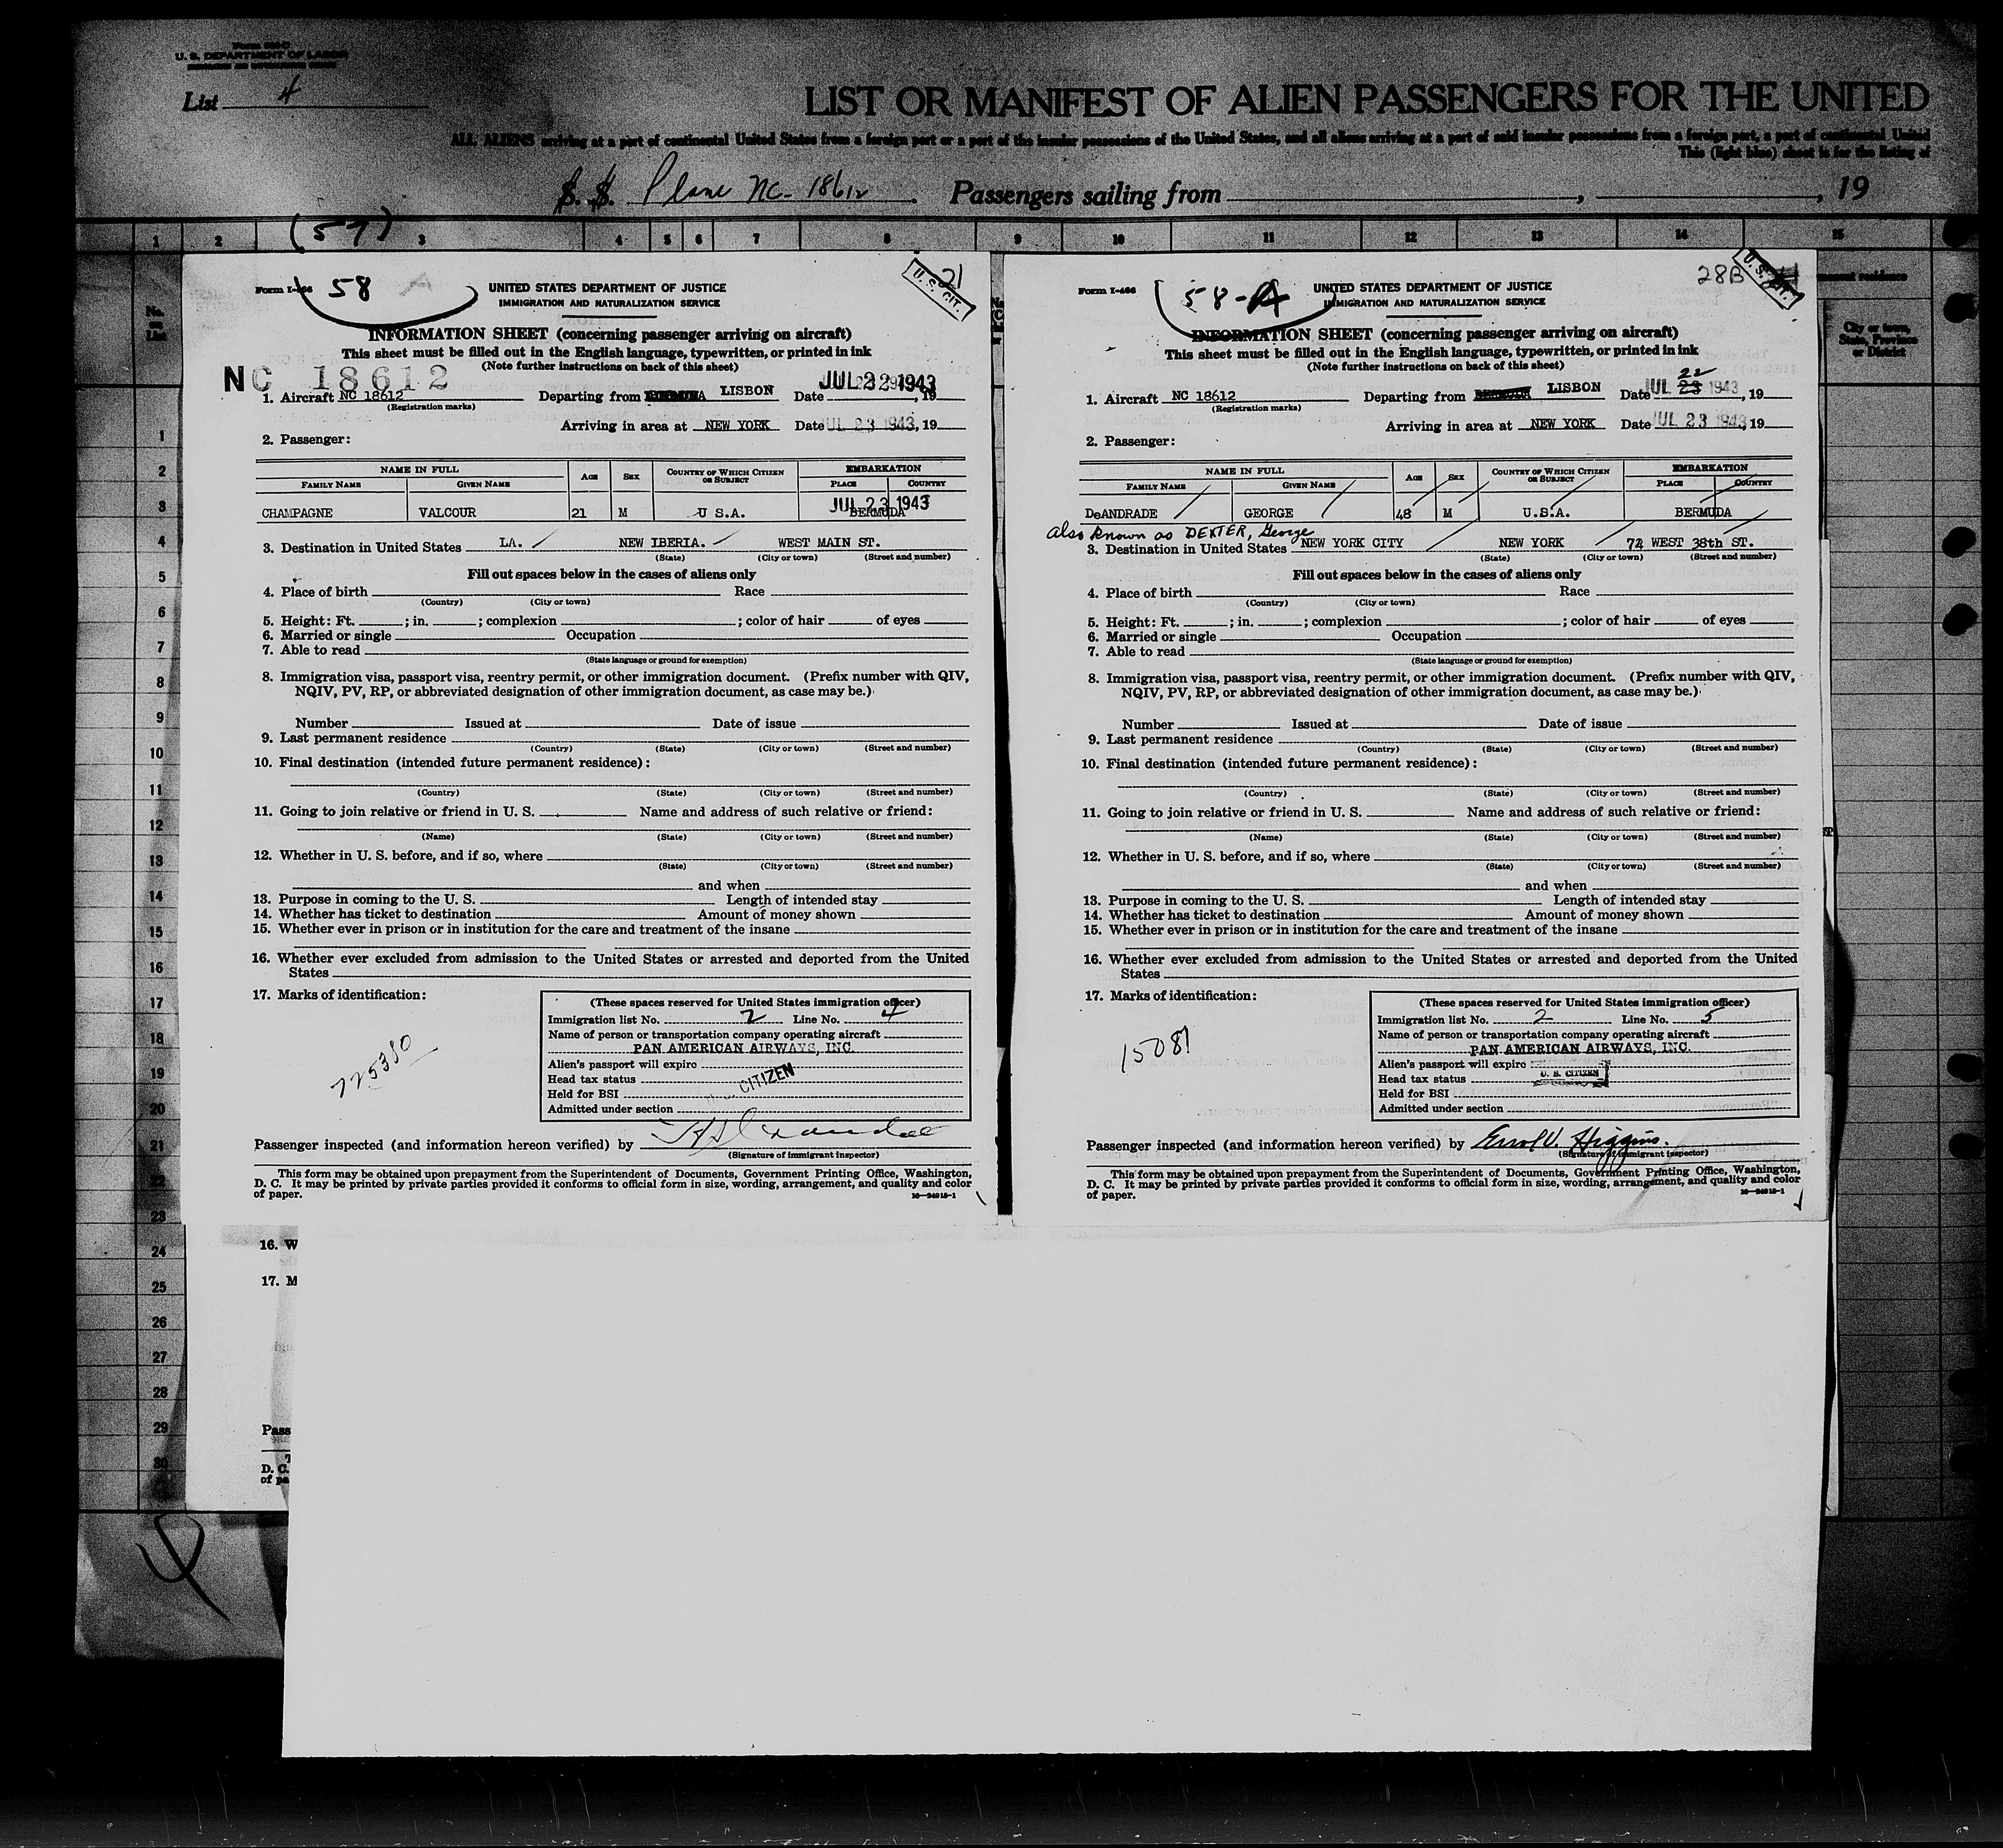 U. S. DEPARTMENT OF LABOR
List 4
LIST OR MANIFEST OF ALIEN PASSENGERS FOR THE UNITED
ALL ALIENS arriving at a port of continental United States from a foreign port or a port of the insular possessions of the United States, and all aliens arriving at a port of said insular possessions from a foreign port, a port of continental United
This (light blue) sheet is for the listing of
S. S. Plane NC-18612 Passengers sailing from , , 19
(57)
1 2 3 4 5 6 7 8 9 10 11 12 13 14 15
No. on List
City or town, State, Province or District
Form I-466 58 A
UNITED STATES DEPARTMENT OF JUSTICE
IMMIGRATION AND NATURALIZATION SERVICE
21
U. S. CIT.
INFORMATION SHEET (concerning passenger arriving on aircraft)
This sheet must be filled out in the English language, typewritten, or printed in ink
(Note further instructions on back of this sheet)
NC 18612
1. Aircraft NC 18612 Departing from BERMUDA LISBON Date JUL 22 1943, 19
(Registration marks)
Arriving in area at NEW YORK Date JUL 23 1943, 19
2. Passenger:
NAME IN FULL AGE SEX COUNTRY OF WHICH CITIZEN OR SUBJECT EMBARKATION
FAMILY NAME GIVEN NAME PLACE COUNTRY
JUL 23 1943
CHAMPAGNE VALCOUR 21 M U S.A. BERMUDA
3. Destination in United States LA. NEW IBERIA. WEST MAIN ST.
(State) (City or town) (Street and number)
Fill out spaces below in the cases of aliens only
4. Place of birth Race
(Country) (City or town)
5. Height: Ft. ; in. ; complexion ; color of hair of eyes
6. Married or single Occupation
7. Able to read
(State language or ground for exemption)
8. Immigration visa, passport visa, reentry permit, or other immigration document. (Prefix number with QIV,
NQIV, PV, RP, or abbreviated designation of other immigration document, as case may be.)
Number Issued at Date of issue
9. Last permanent residence
(Country) (State) (City or town) (Street and number)
10. Final destination (intended future permanent residence):
(Country) (State) (City or town) (Street and number)
11. Going to join relative or friend in U. S. Name and address of such relative or friend:
(Name) (State) (City or town) (Street and number)
12. Whether in U. S. before, and if so, where
(State) (City or town) (Street and number)
and when
13. Purpose in coming to the U. S. Length of intended stay
14. Whether has ticket to destination Amount of money shown
15. Whether ever in prison or in institution for the care and treatment of the insane
16. Whether ever excluded from admission to the United States or arrested and deported from the United
States
17. Marks of identification:
725380
(These spaces reserved for United States immigration officer)
Immigration list No. 2 Line No. 4
Name of person or transportation company operating aircraft
PAN AMERICAN AIRWAYS, INC.
Alien's passport will expire
Head tax status CITIZEN
Held for BSI
Admitted under section
Passenger inspected (and information hereon verified) by
(Signature of immigrant inspector)
This form may be obtained upon prepayment from the Superintendent of Documents, Government Printing Office, Washington,
D. C. It may be printed by private parties provided it conforms to official form in size, wording, arrangement, and quality and color
of paper.
16—24915-1
Form I-466 58-A
UNITED STATES DEPARTMENT OF JUSTICE
IMMIGRATION AND NATURALIZATION SERVICE
28B
INFORMATION SHEET (concerning passenger arriving on aircraft)
This sheet must be filled out in the English language, typewritten, or printed in ink
(Note further instructions on back of this sheet)
22
1. Aircraft NC 18612 Departing from BERMUDA LISBON Date JUL 23 1943, 19
(Registration marks)
Arriving in area at NEW YORK Date JUL 23 1943, 19
2. Passenger:
NAME IN FULL AGE SEX COUNTRY OF WHICH CITIZEN OR SUBJECT EMBARKATION
FAMILY NAME GIVEN NAME PLACE COUNTRY
DeANDRADE GEORGE 48 M U.S.A. BERMUDA
also known as DEXTER, George
3. Destination in United States NEW YORK CITY NEW YORK 72 WEST 38th ST.
(State) (City or town) (Street and number)
Fill out spaces below in the cases of aliens only
4. Place of birth Race
(Country) (City or town)
5. Height: Ft. ; in. ; complexion ; color of hair of eyes
6. Married or single Occupation
7. Able to read
(State language or ground for exemption)
8. Immigration visa, passport visa, reentry permit, or other immigration document. (Prefix number with QIV,
NQIV, PV, RP, or abbreviated designation of other immigration document, as case may be.)
Number Issued at Date of issue
9. Last permanent residence
(Country) (State) (City or town) (Street and number)
10. Final destination (intended future permanent residence):
(Country) (State) (City or town) (Street and number)
11. Going to join relative or friend in U. S. Name and address of such relative or friend:
(Name) (State) (City or town) (Street and number)
12. Whether in U. S. before, and if so, where
(State) (City or town) (Street and number)
and when
13. Purpose in coming to the U. S. Length of intended stay
14. Whether has ticket to destination Amount of money shown
15. Whether ever in prison or in institution for the care and treatment of the insane
16. Whether ever excluded from admission to the United States or arrested and deported from the United
States
17. Marks of identification:
15081
(These spaces reserved for United States immigration officer)
Immigration list No. 2 Line No. 5
Name of person or transportation company operating aircraft
PAN AMERICAN AIRWAYS, INC.
Alien's passport will expire
Head tax status U. S. CITIZEN
Held for BSI
Admitted under section
Passenger inspected (and information hereon verified) by Errol V. Higgins.
(Signature of immigrant inspector)
This form may be obtained upon prepayment from the Superintendent of Documents, Government Printing Office, Washington,
D. C. It may be printed by private parties provided it conforms to official form in size, wording, arrangement, and quality and color
of paper.
16—24915-1
1
2
3
4
5
6
7
8
9
10
11
12
13
14
15
16
17
18
19
20
21
22
23
24
25
26
27
28
29
30
16. W
17. M
Pass
D. C.
of pa
4